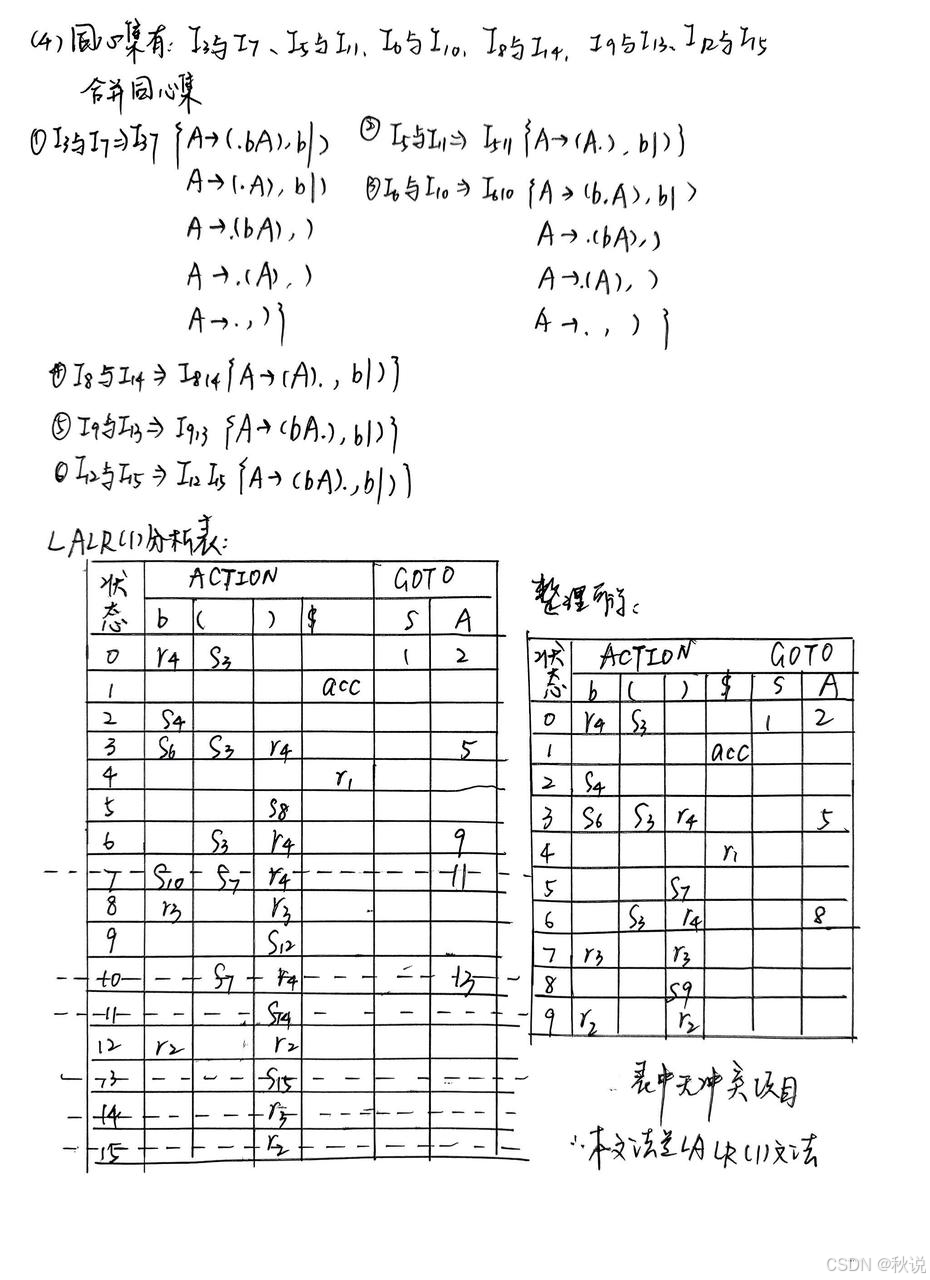 (4) 同心集有: I3与I7、I5与I11, I6与I10, I8与I14, I9与I13、I12与I15
合并同心集
① I3与I7⇒I37 {A→(.bA), b|)
A→(.A), b|)
A→.(bA), )
A→.(A), )
A→., )}
② I5与I11⇒ I511 {A→(A.), b|)}
③ I6与I10 ⇒ I610 {A→(b.A), b|)
A→.(bA), )
A→.(A), )
A→., ) }
④ I8与I14 ⇒ I814 {A→(A)., b|)}
⑤ I9与I13⇒ I913 {A→(bA.), b|)}
⑥ I12与I15 ⇒ I12 I15 {A→(bA)., b|)}
LALR(1)分析表:
状态 ACTION GOTO
b ( ) $ S A
0 r4 S3 1 2
1 acc
2 S4
3 S6 S3 r4 5
4 r1
5 S8
6 S3 r4 9
7 S10 S7 r4 11
8 r3 r3
9 S12
10 S7 r4 13
11 S14
12 r2 r2
13 S15
14 r3
15 r2
整理可得:
状态 ACTION GOTO
b ( ) $ S A
0 r4 S3 1 2
1 acc
2 S4
3 S6 S3 r4 5
4 r1
5 S7
6 S3 r4 8
7 r3 r3
8 S9
9 r2 r2
表中无冲突项目
∴本文法是LALR(1)文法
CSDN @秋说